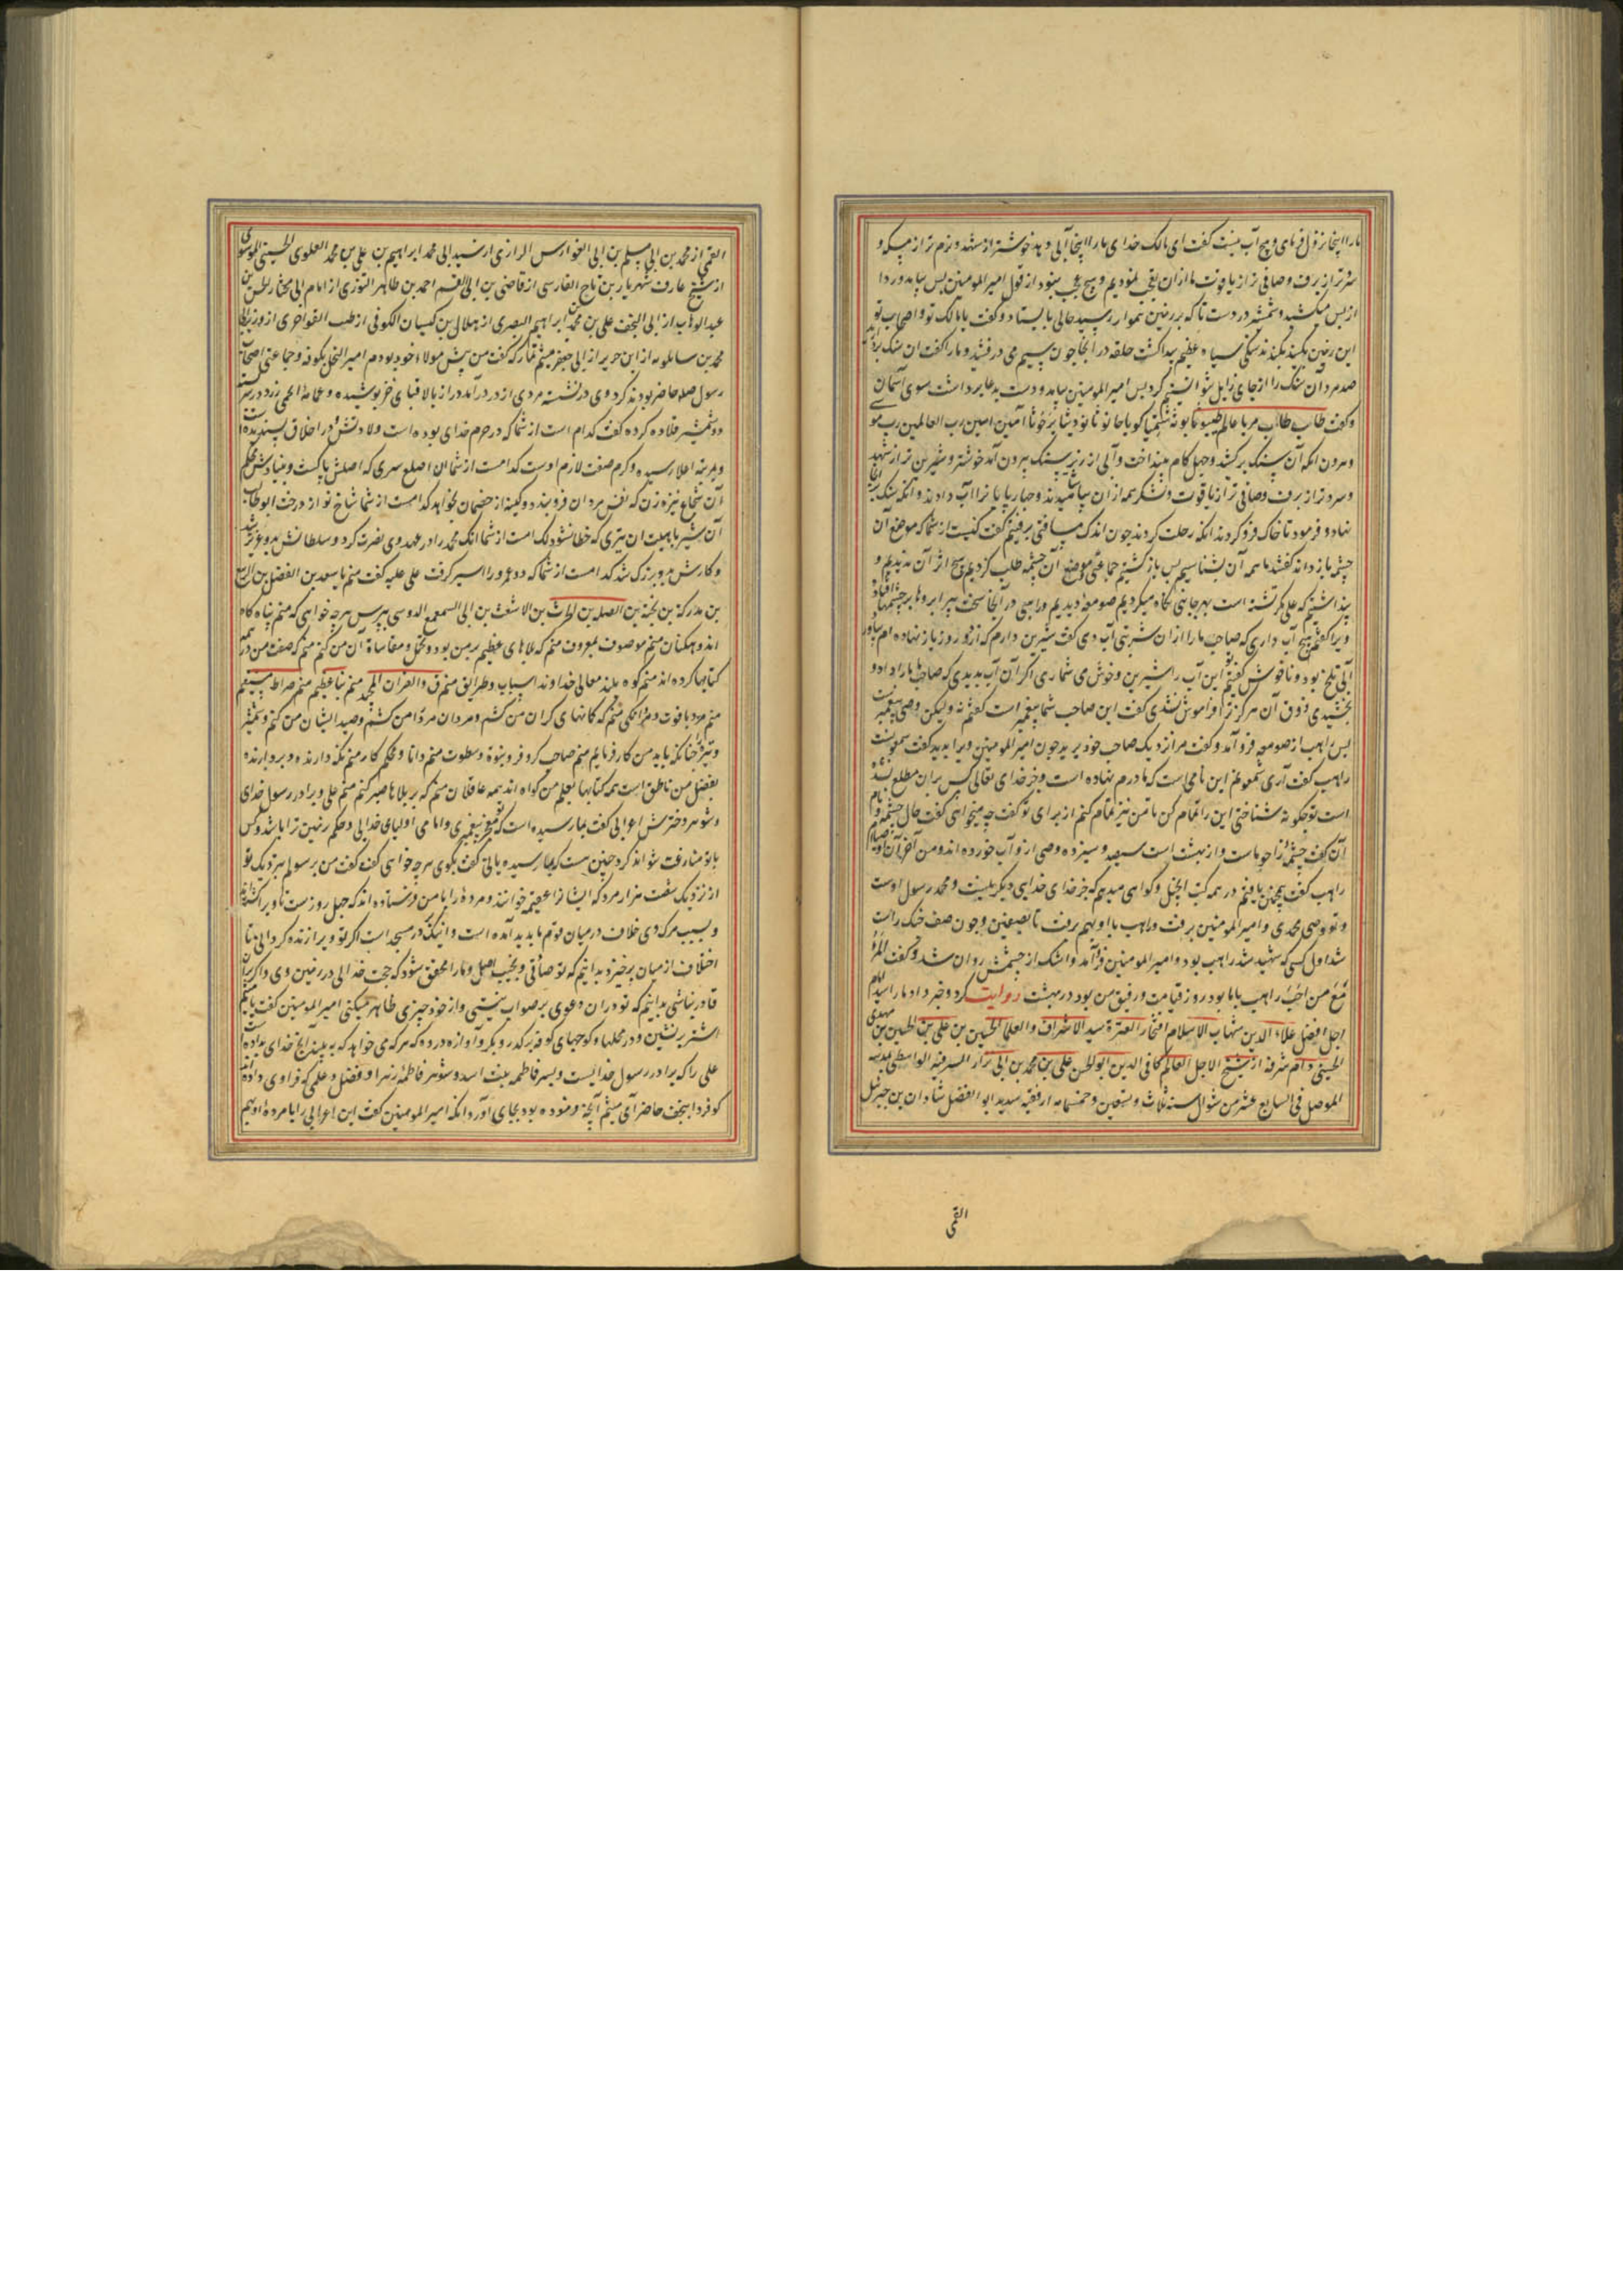 ما را اینجا نزول فرمای و هیچ آب نیست گفت ای مالک خدای ما را اینجا آبی دهد خوشتر از شهد و نرم تر از مسکه و
سردتر از برف و صافی تر از یاقوت ما از ان تعجب نمودیم و هیچ عجب نبود از قول امیرالمومنین پس بیامد و ردا
از پس میکشید و شمشیر در دست تا که بر زمین هموار رسید حالی بایستاد و گفت یا مالک تو و اصحاب تو
این زمین بکنید بکندند سنکی سیاه عظیم پیدا کشت حلقه در انجا چون سیم می درفشید و ما را گفت ان سنک بردارید
صد مرد ان سنک را از جای زایل نتوانستیم کرد پس امیرالمومنین بیامد و دست بدعا برداشت سوی آسمان
و گفت طاب طاب مریا عالم آمین آمین رب العالمین رب موسی
و هرون انکه آن سنک برکشید و چهل کام بینداخت و آبی از زیر سنک بیرون آمد خوشتر و شیرین تر از شهد
و سردتر از برف و صافی تر از یاقوت و لشکر همه از ان بیاشامیدند و چارپایان را آب دادند و انکه سنک بر انجا
نهاد و فرمود تا خاک فرو کردند انکه رحلت کردند چون اندک مسافتی برفتیم گفت کیست از شما که موضع آن
چشمه باز داند گفتند ما همه آن بشناسیم پس بازکشتیم جماعتی و موضع آن چشمه طلب کردیم هیچ اثر آن ندیدیم و
پنداشتیم که علی تشنه است بهر جانبی نکاه میکردیم صومعه دیدیم و راهبی در آنجا سخت پیر ابروها بر چشمها افتاده
ویرا گفتم هیچ آب داری که صاحب ما را از ان شربتی آب دهی گفت شیرین دارم که از دو روز باز نهاده ام بیاورد
آبی تلخ بود و ناخوش گفتیم این آب را شیرین و خوش می شماری اکر آن آب بدیدی که صاحب ما ما را داد و
بچشیدی ذوق آن هرکز ترا فراموش نشدی گفت این صاحب شما پیغمبر است گفتم نه ولیکن وصی پیغمبر است
پس راهب از صومعه فرو آمد و گفت مرا نزدیک صاحب خود برید چون امیرالمومنین ویرا بدید گفت شمعونست
راهب گفت آری شمعونم این نامی است که مادرم نهاده است و جز خدای تعالی کس بران مطلع نشده
است تو چکونه شناختی این را تمام کن تا من نیز تمام کنم از برای تو گفت چه میخواهی گفت حال چشمه و نام
آن گفت چشمه زاحوماست و از بهشت است سیصد و سیزده وصی از و آب خورده اند و من آخر آن اوصیاام
راهب گفت همچنین یافتم در همه کتب انجیل و کواهی میدهم که جز خدای خدایی دیکر نیست و محمد رسول اوست
و تو وصی محمدی و امیرالمومنین برفت و راهب با او بهم برفت تا بصفین و چون صف جنک راست
شد اول کسی که شهید شد راهب بود و امیرالمومنین فرو آمد و اشک از چشمش روان شد و گفت المرء
مع من احب راهب با ما بود روز قیامت و رفیق من بود در بهشت روایت کرد و خبر داد ما را سید امام
اجل افضل علاء الدین شهاب الاسلام افتخار العترة سید الاشراف و العلما الحسین بن علی بن مهدی الحسین بن
الحسینی دام شرفه از شیخ الاجل العالم کافی الدین ابو الحسن علی بن محمد بن ابی نزار الواسطی بمدینه
الموصل فی السابع عشر من شوال سنه ثلاث و تسعین و خمسمایه از فقیه سدید ابو الفضل شاذان بن جبرئیل
القمی
القمی از محمد بن ابی مسلم بن ابی الفوارس الرازی از سید ابی محمد ابراهیم بن علی بن محمد العلوی الحسینی الموسوی
از شیخ عارف شهریار بن تاج الفارسی از قاضی بن ابی القسم احمد بن طاهر التوزی از امام ابی مختار الحسن بن
عبدالوهاب از ابی النجف علی بن محمد بن ابراهیم البصری از هلال بن کیسان الکوفی از طیب القواحری از
محمد بن سایلویه از ابن حریر از ابی جعفر میثم تمار که گفت من پیش مولاء خود بودم امیرالنحل بکوفه و جماعتی اصحاب
رسول صلم حاضر بودند کرد وی درنشسته مردی از در درآمد دراز بالا قبای خز پوشیده و عمامه اتحمی زرد در سر بسته
دو شمشیر قلاده کرده گفت کدام است از شما که در حرم خدای بوده است ولادتش و در اخلاق پسندیده
و بمرتبه اعلا رسیده و کرم صفت لازم اوست کدامست از شما ان اصلع سری که اصلش پاکست و بنیادش محکم
آن شجاع نیزه زن که نفس مردان فرو بندد و کینه از خصمان بخواهد کدامست از شما شاخ نو از درخت ابوطالب
آن شیر باهیبت ان تیری که خطا نشود کدامست از شما انک محمد را در عهد وی نصرت کرد و سلطانش بدو عزیز شد
و کارش بدو بزرک شد کدامست از شما که دو عمرو را اسیر کرفت علی علیه گفت منم یا سعد بن الفضل بن الربیع
بن مدرکة بن نجبة بن الصلت بن الحارث بن الاشعث بن ابی السمعمع الدوسی بپرس هرچه خواهی که منم پناه کاه
اندوهکنان منم موصوف بمعروف منم که بلاهای عظیم بر من بود و تحمل و مقاساة آن من کنم منم که صفت من در همه
کتابها کرده اند منم کوه بلند معالی خداوند اسباب و طرایق منم ق والقران المجید منم نبأ عظیم منم صراط مستقیم
منم مرد با قوت و مردانکی منم که کمانهای کران من کشم و مردان مرد را من کشم و صید ایشان من کنم و شمشیر
و تیر چنانکه باید من کار فرمایم منم صاحب کر و فر و بنوة و سطوت منم دانا و محکم کار منم نکه دارنده و بردارنده
بفضل من ناطق است همه کتابها بعلم من کواه اند همه عاقلان منم که بر بلاها صبر کنم منم علی و برادر رسول خدای
و شوهر دخترش اعرابی گفت بما رسیده است که تو معجز پیغمبری و امامی اولیای خدایی و حکم زمین ترا باشد و کس
با تو منازعت نتواند کرد چنین هست که بما رسیده یا نی گفت بکوی هرچه خواهی گفت گفت من رسولم بنزدیک تو
از نزدیک شصت هزار مرد که ایشانرا عقیمه خوانند و مرده را با من فرستاده اند که چهل روزست تا ویرا کشته اند
و بسبب مرک وی خلاف در میان قوم ما پدید آمده است و اینک بر در مسجد است اکر تو ویرا زنده کردانی تا
اختلاف از میان برخیزد بدانیم که تو صادقی و نجیب اصل و ما را محقق شود که حجت خدایی در زمین وی و اکر بران
قادر نباشی بدانیم که تو دران دعوی بر صواب نیستی و از خود چیزی ظاهر میکنی امیرالمومنین گفت یا میثم
اشتر برنشین و در محلها و کوچهای کوفه بر کذر و بکو آوازه درده که هرکه می خواهد که به بیند انچ خدای بداده است
علی را که برادر رسول خدایست و پسر فاطمه بنت اسد و شوهر فاطمه زهرا و فضل و علمی که فرا وی داده اند
کو فردا بنجف حاضر آی میثم آنچه فرموده بود بجای آورد انکه امیرالمومنین گفت این اعرابی را با مرده او بهم